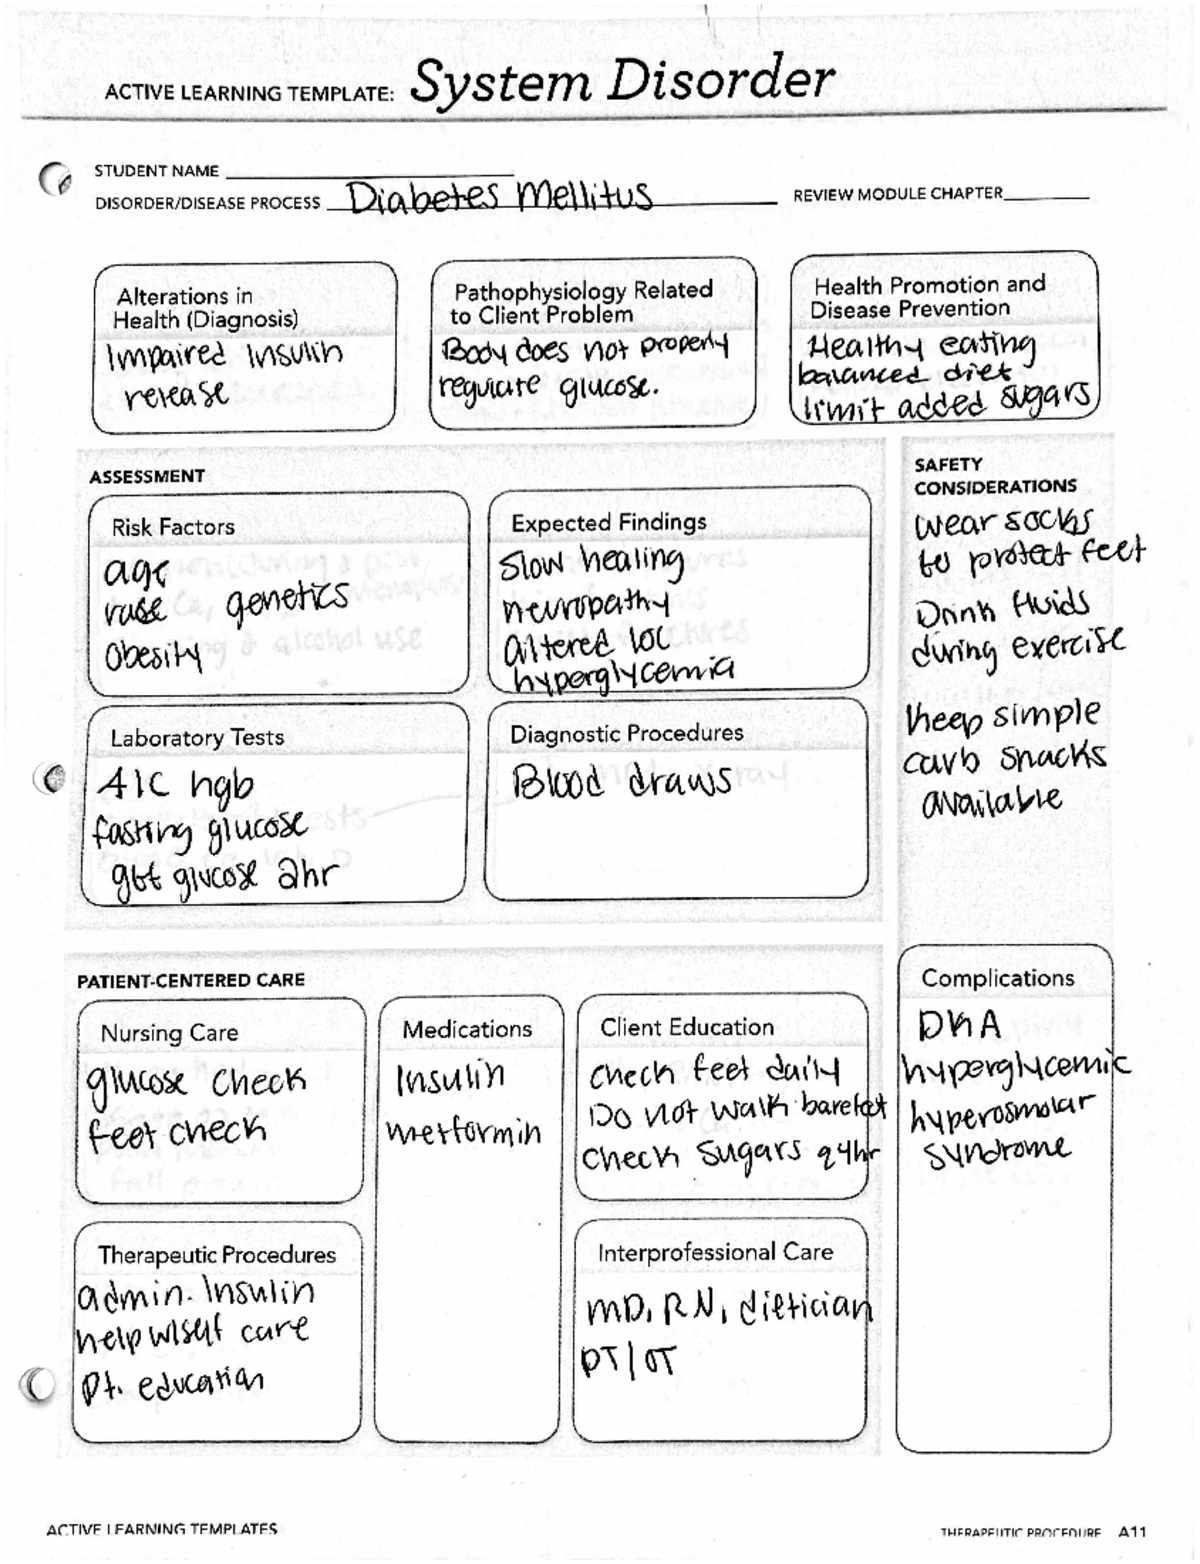 ACTIVE LEARNING TEMPLATE: System Disorder
STUDENT NAME
DISORDER/DISEASE PROCESS Diabetes Mellitus
REVIEW MODULE CHAPTER
Alterations in
Health (Diagnosis)
Impaired insulin
release
Pathophysiology Related
to Client Problem
Body does not properly
regulate glucose.
Health Promotion and
Disease Prevention
Healthy eating
balanced diet
limit added sugars
ASSESSMENT
Risk Factors
age
genetics
obesity
Expected Findings
slow healing
neuropathy
altered LOC
hyperglycemia
Laboratory Tests
A1C hgb
fasting glucose
glucose 2hr
Diagnostic Procedures
Blood draws
SAFETY
CONSIDERATIONS
wear socks
to protect feet
Drink fluids
during exercise
keep simple
carb snacks
available
PATIENT-CENTERED CARE
Nursing Care
glucose check
feet check
Medications
Insulin
metformin
Client Education
check feet daily
Do not walk barefoot
check sugars q4hr
Complications
DKA
hyperglycemic
hyperosmolar
syndrome
Therapeutic Procedures
admin. Insulin
help w/self care
pt. education
Interprofessional Care
MD, RN, dietician
PT/OT
ACTIVE LEARNING TEMPLATES
THERAPEUTIC PROCEDURE A11